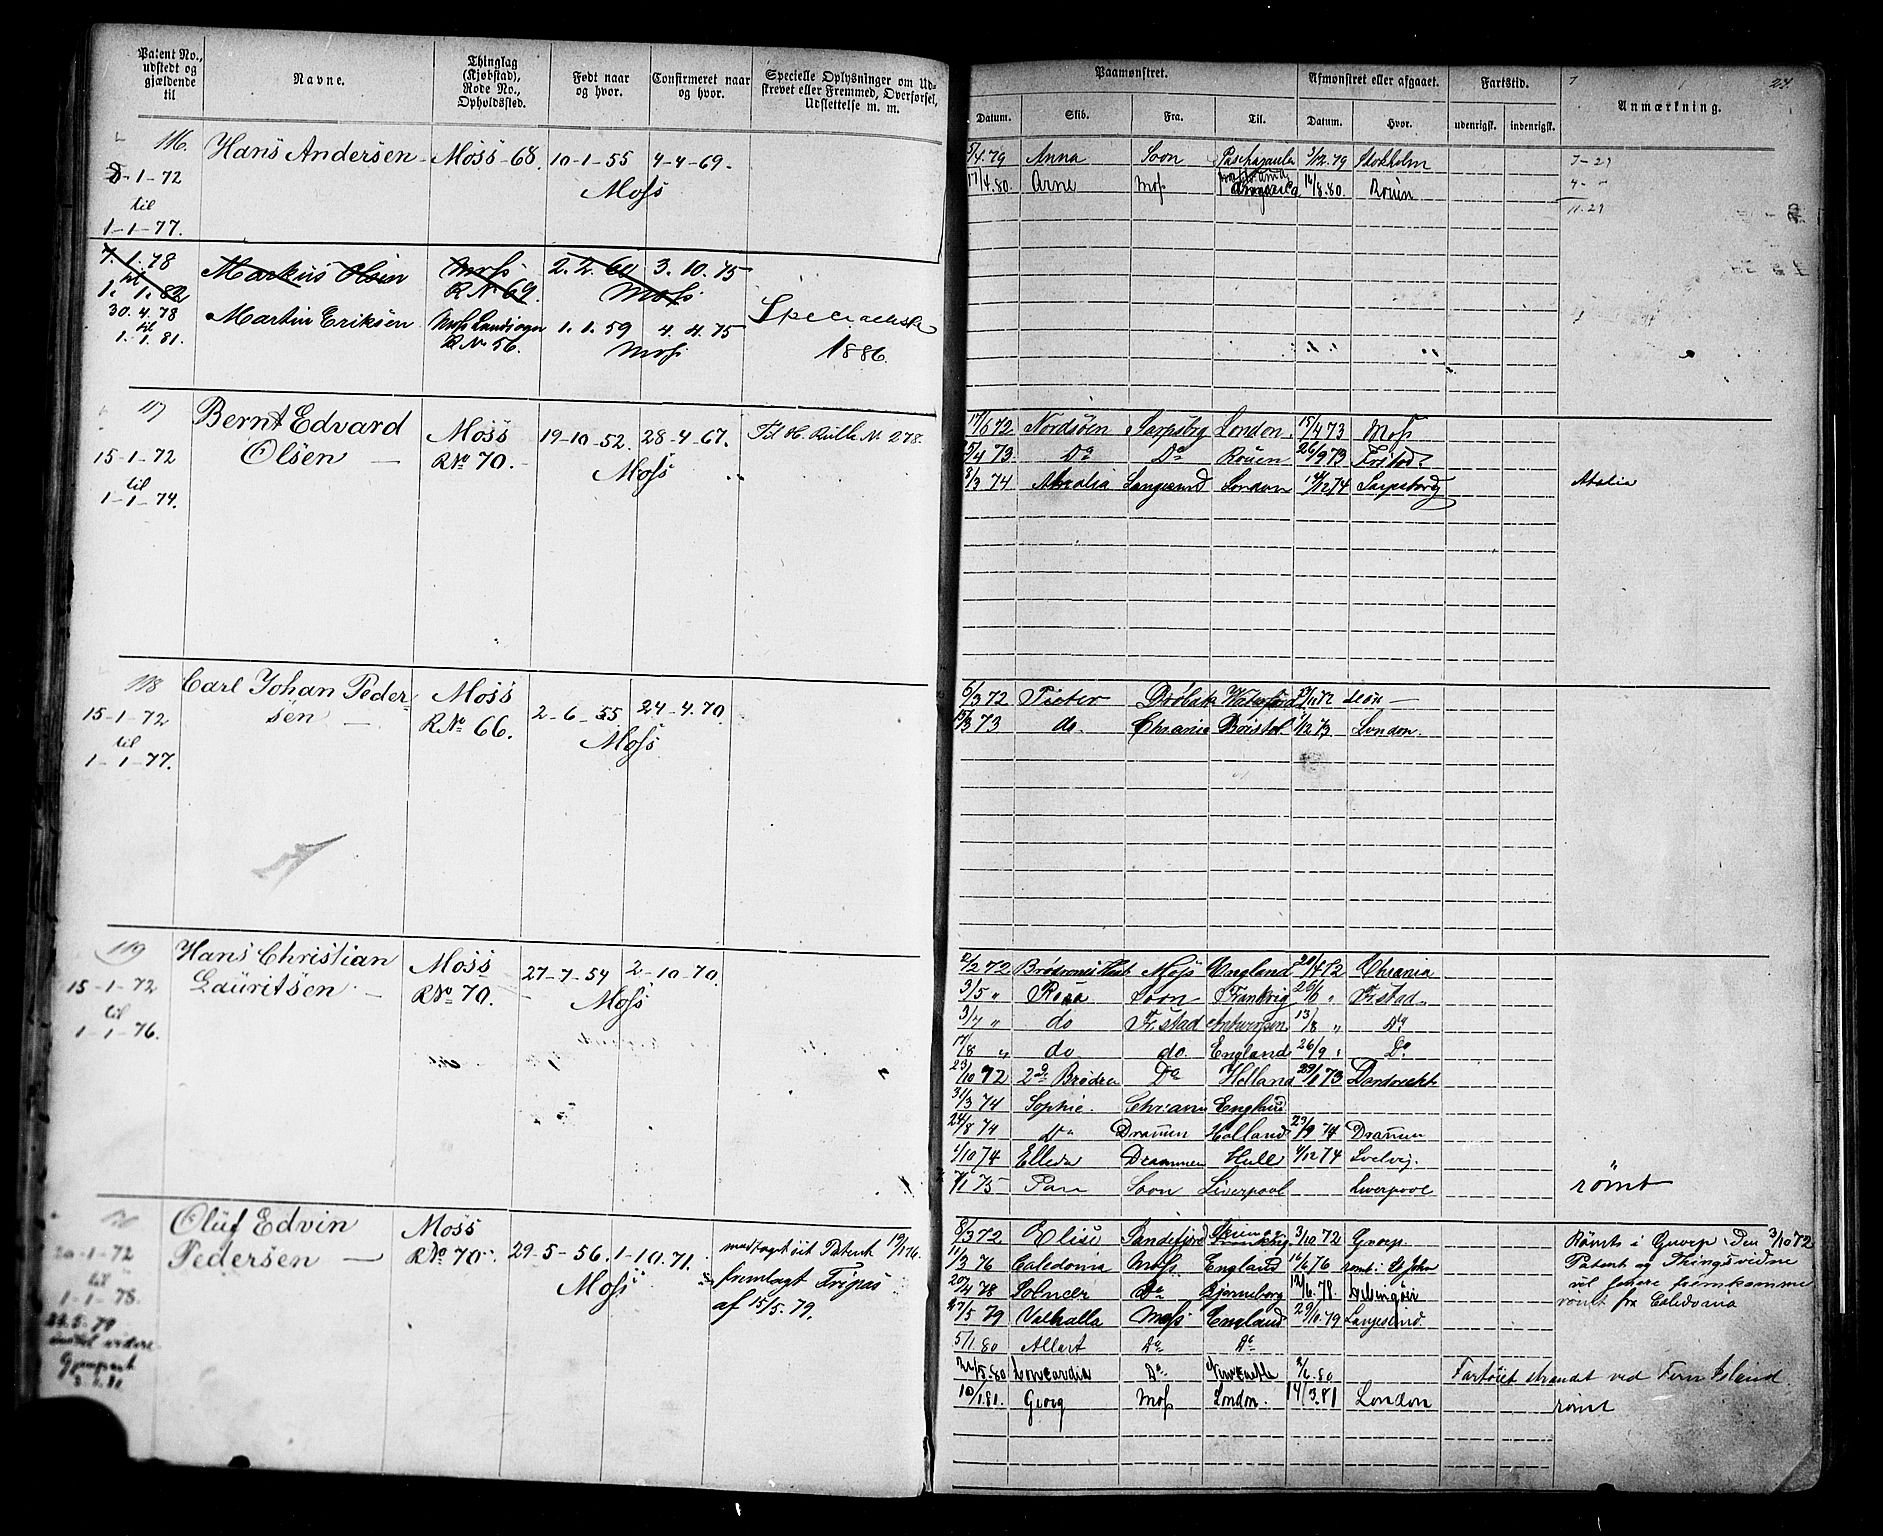 Patent No., udstedt og gjældende til
Navne.
Thinglag (Kjøbstad), Rode No., Opholdssted.
Født naar og hvor.
Confirmeret naar og hvor.
Specielle Oplysninger om Udskrevet eller Fremmed, Overførsel, Udslettelse m. m.
Paamønstret.
Afmønstret eller afgaaet.
Fartstid.
Anmærkning.
Datum.
Skib.
Fra.
Til.
Datum.
Hvor.
udenrigsk.
indenrigsk.
116.
Hans Andersen
Moss 68
10-1-55
4-4-69.
Moss
-1-72
til
1-1-77.
5/4.79 Anna Soon 3/12.79 Stokholm
17/4.80. Arne Moss 8.80. Rouen
7-29
11-29
7.1.78
til
1.1.82
Markus Olsen
Moss
R No 69.
2.2.60
3.10.75
Moss
30.4.78
til
1.1.81.
Martin Eriksen
R No 56.
1.1.59
4.4.75
Moss
1886.
117
Bernt Edvard
Olsen
Moss
R No 70.
19-10-52.
28-4-67.
Moss
Til H. Rulle N. 278.
15-1-72
til
1-1-74.
17/6 72 Nordsøen Sarpsbg London 15/4 73 Moss
15/4 73. Do Do Rouen 26/9 73 Frstad
8/3 74 Langesund London 12 74 Sarpsborg
Atalia
118
Carl Johan Peder-
sen
Moss
R No 66.
2-6-55
24-4-70.
Moss
15-1-72
til
1-1-77.
6/3 72 Pieter Drøbak
15/3 73 do. Chrania Bristol 12 73 London.
119
Hans Christian
Lauritsen
Moss
R No 70.
27-7-54
2-10-70.
Moss
15-1-72
til
1-1-76.
2/2 72 Moss England 20/4 72 Chrania
3/5 " Rosa Soon Frankrig 26/6 " Frstad
3/7 " do Frstad Antwerpen 13/8 " Do
17/8 " do do England 26/9 " Do
23/10 72 2de Brødre Do Holland 29/1 73 Dordrecht
31/3 74 Sophie. Chrania England
24/8 74 do Dramen Holland 23/9 74 Dramen
10 74 Elleda Drammen Hull 12 74 Svelvig.
1 75 Pan Soon Liverpool Liverpool
rømt
Oluf Edvin
Pedersen
Moss
R No 70.
29-5-56.
1-10-71.
Moss
20-1-72
til
1-1-78.
Patent 19/1 76.
fremlagt
af 15/5-79.
8/3 72 Elise Sandefjord 3/10 72
11/3 76 Caledonia Moss England 16/6 76 rømt i St John
20/4 78 Do Bjørneborg 12/6.78 Helsingør
27/5 79 Valhalla Moss England 29/10.79 Langesund
5/1.80 Allart Do Do
5.80 Concordia Do Newcastle 80
10/1.81. Georg Moss London. 14/3.81 London
Rømt i Den 3/10 72
Patent og
rømt fra Caledonia
Fartøiet strandet ved Island
rømt